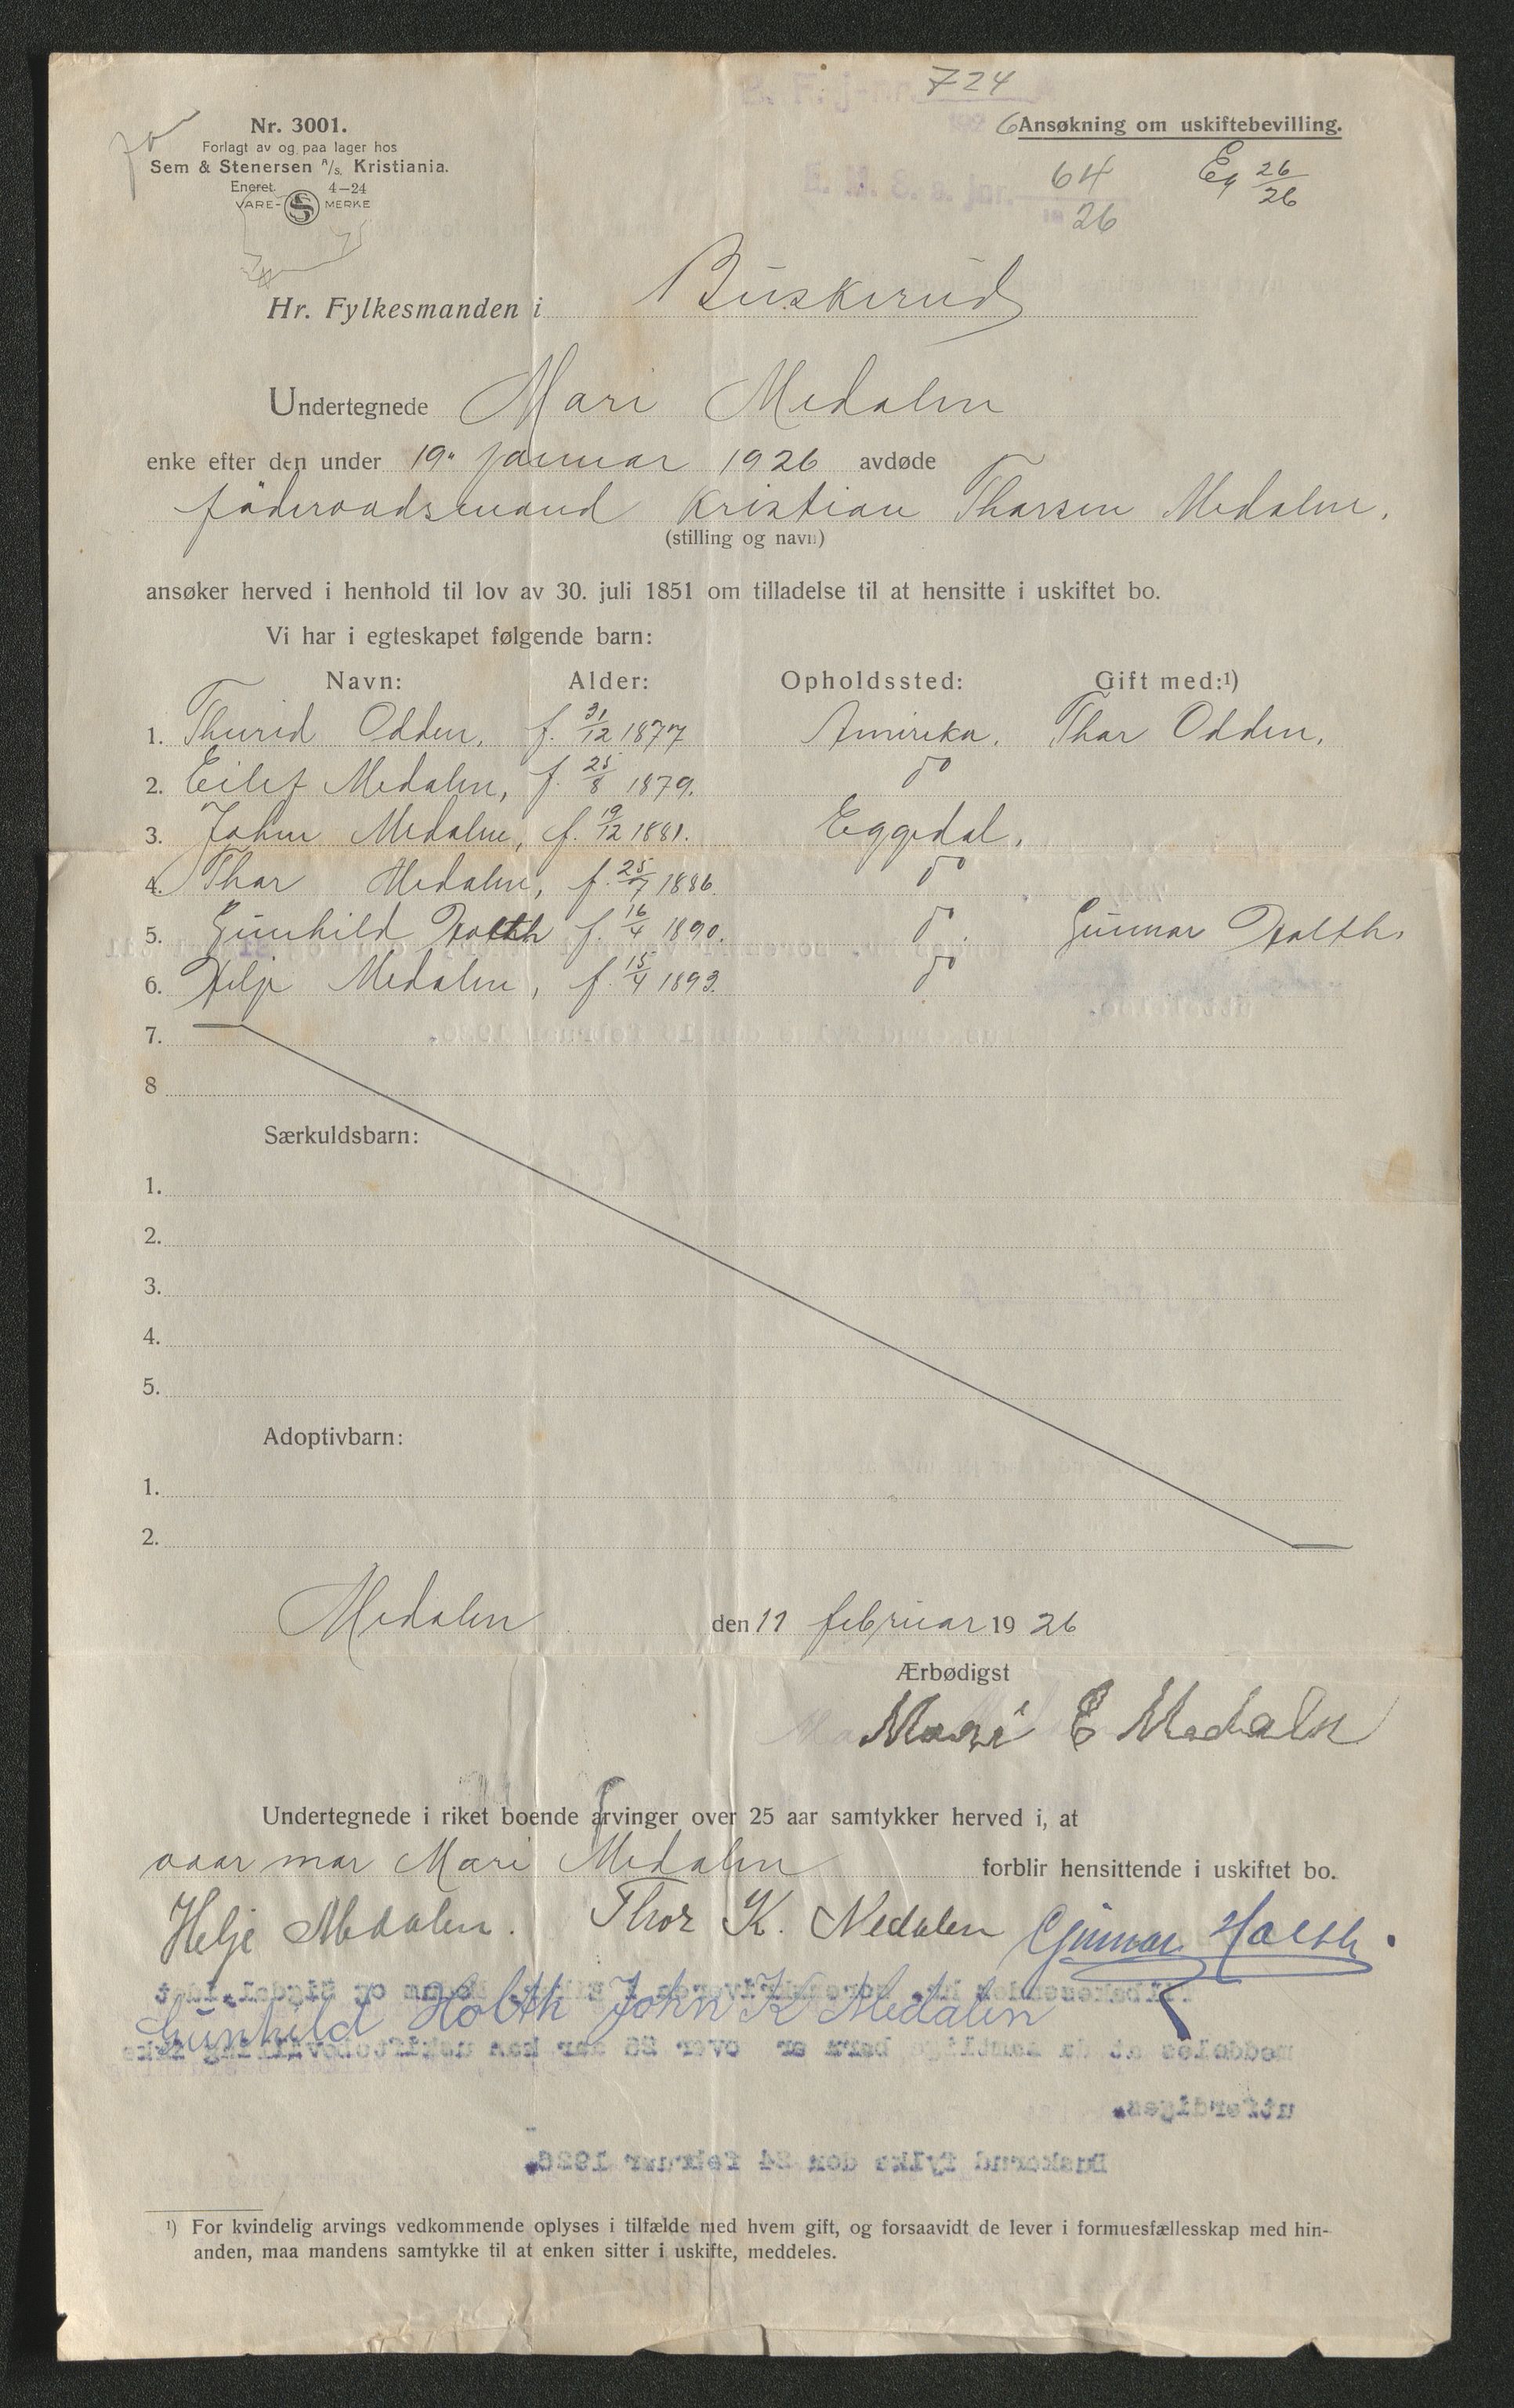 724
Nr. 3001.
Forlagt av og paa lager hos
Sem & Stenersen A/S. Kristiania.
Eneret. 4—24
VARE- S MERKE
6 Ansøkning om uskiftebevilling.
E. M. S. s. jnr. 64
26
Eg 26/26
Hr. Fylkesmanden i Buskerud
Undertegnede Mari Medalen
enke efter den under 19. januar 1926 avdøde
föderaadsmand Kristian Thorsen Medalen.
(stilling og navn)
ansøker herved i henhold til lov av 30. juli 1851 om tilladelse til at hensitte i uskiftet bo.
Vi har i egteskapet følgende barn:
Navn: Alder: Opholdssted: Gift med:¹)
1. Thurid Odden, f. 31/12 1877 Amirika. Thor Odden.
2. Eilef Medalen, f. 25/8 1879. do
3. John Medalen, f. 19/12 1881. Eggedal.
4. Thor Medalen, f. 25/7 1886. do
5. Gunhild Holth f. 16/4 1890. do. Gunnar Holth.
6. Helje Medalen, f. 15/4 1893. do
7.
8
Særkuldsbarn:
1.
2.
3.
4.
5.
Adoptivbarn:
1.
2.
Medalen den 11 februar 1926
Ærbødigst
Mari E Medalen
Undertegnede i riket boende arvinger over 25 aar samtykker herved i, at
vaar mor Mari Medalen forblir hensittende i uskiftet bo.
Helje Medalen. Thor K. Medalen Gunnar Holth.
Gunhild Holth John K Medalen
meddeles at da samtlige barn er over 25 aar kan uskiftebevilling ikke
utferdiges.
Buskerud fylke den 24 februar 1926.
¹) For kvindelig arvings vedkommende oplyses i tilfælde med hvem gift, og forsaavidt de lever i formuesfællesskap med hin-
anden, maa mandens samtykke til at enken sitter i uskifte, meddeles.